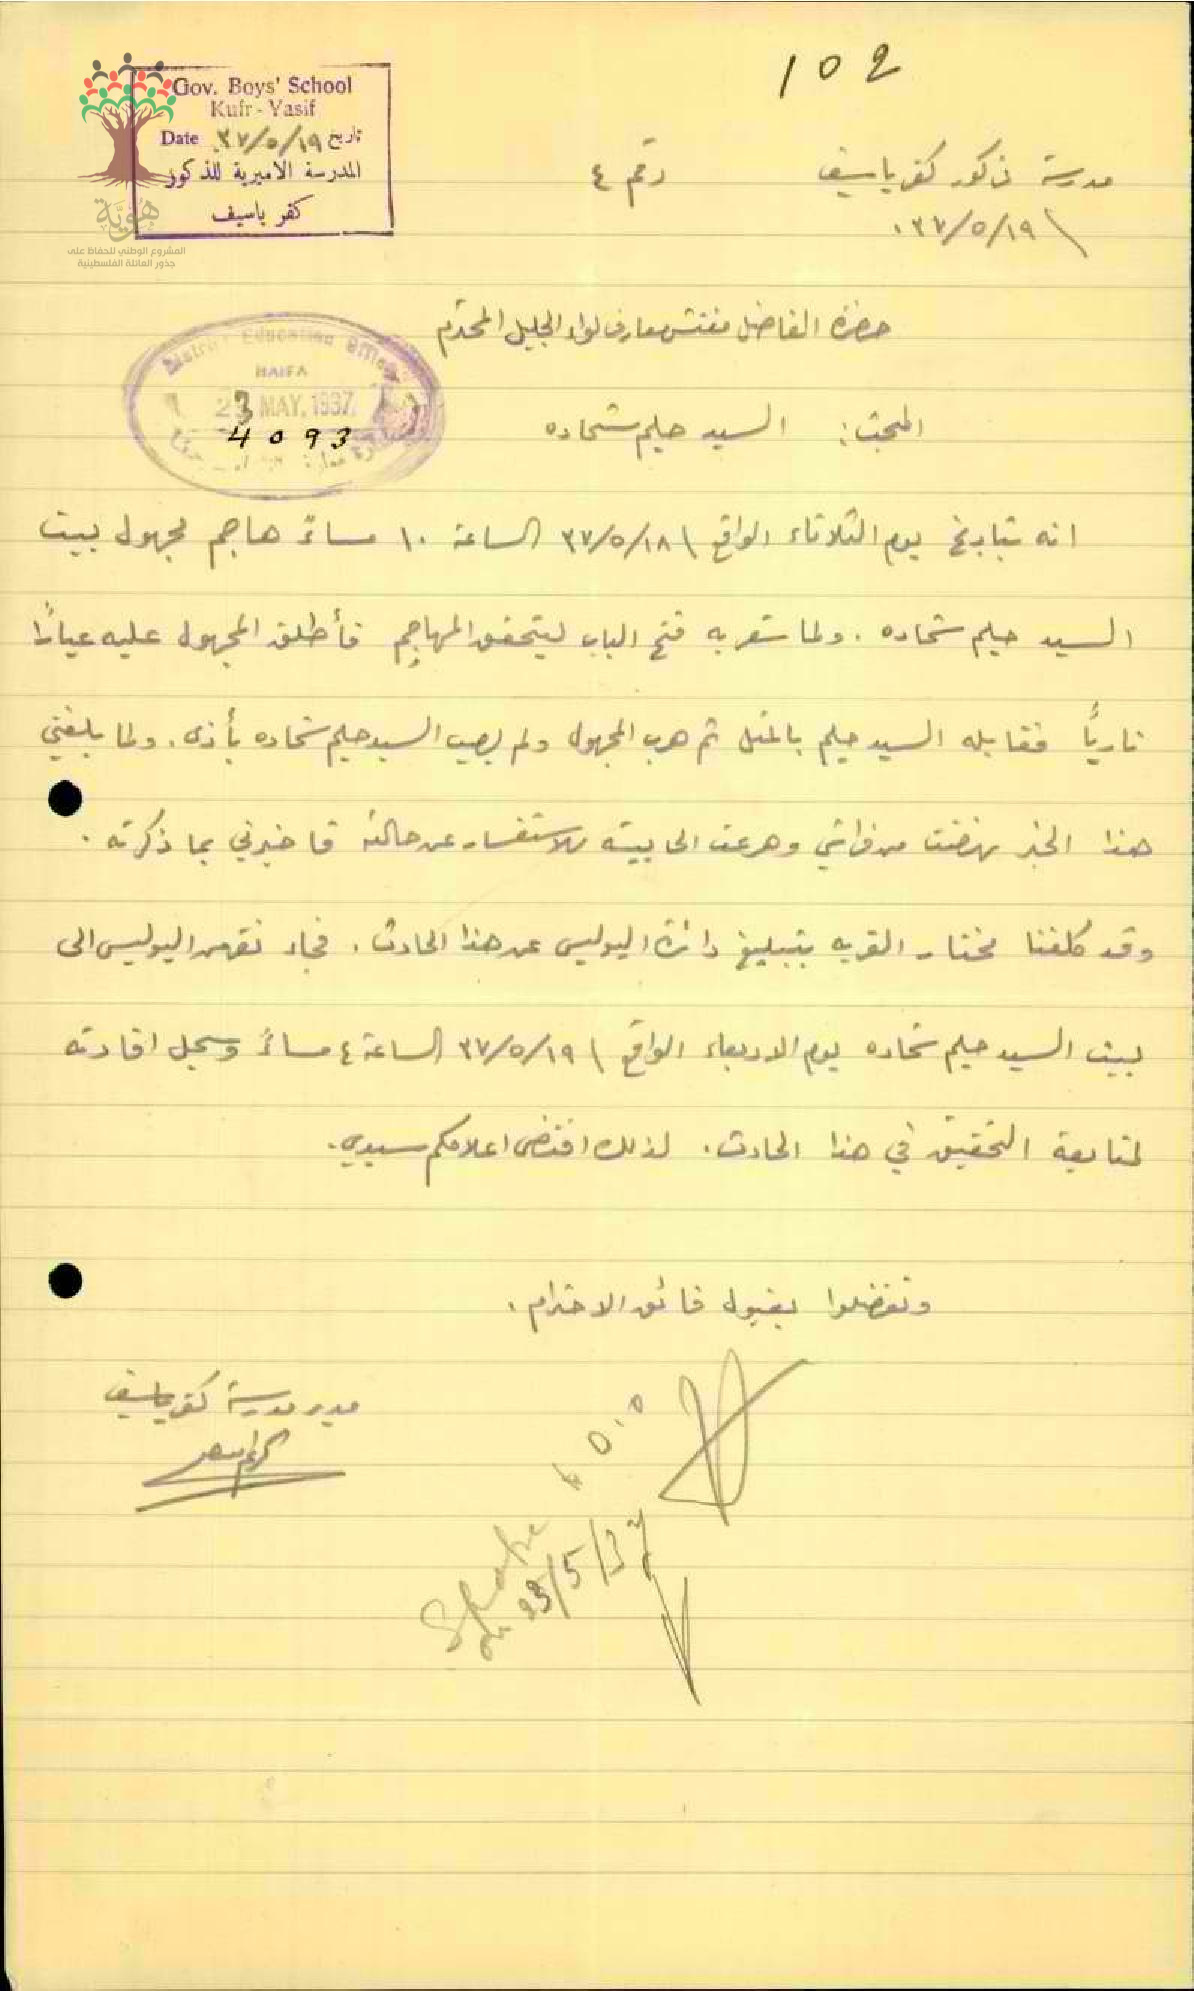 102
Gov. Boys' School
Kufr - Yasif
Date ٣٧/٥/١٩ تاريخ
المدرسة الاميرية للذكور
كفر ياسيف
هُوِيَّة
المشروع الوطني للحفاظ على
جذور العائلة الفلسطينية
مدرسة ذكور كفر ياسيف رقم ٤
٣٧/٥/١٩
حضرة الفاضل مفتش معارف لواء الجليل المحترم
District Education Office
HAIFA
23 MAY. 1937
4093
المبحث: السيد حليم شحاده
انه بتاريخ يوم الثلاثاء الواقع ٣٧/٥/١٨ الساعة ١٠ مساءً هاجم مجهول بيت
السيد حليم شحاده . ولما شعر به فتح الباب ليتحقق المهاجم فأطلق المجهول عليه عيارًا
ناريًّا فقابله السيد حليم بالمثل ثم هرب المجهول ولم يصب السيد حليم شحاده بأذى . ولما بلغني
هذا الخبر نهضت من فراشي وهرعت الى بيته للاستفسار عن حالته فاخبرني بما ذكرته .
وقد كلفنا مختار القريه بتبليغ دائرة البوليس عن هذا الحادث . فجاء نفر من البوليس الى
بيت السيد حليم شحاده يوم الاربعاء الواقع ٣٧/٥/١٩ الساعة ٤ مساءً وسجل افادته
لمتابعة التحقيق في هذا الحادث . لذلك اقتضى اعلامكم سيدي .
وتفضلوا بقبول فائق الاحترام .
مدير مدرسة كفر ياسيف
Spoke to
on 23/5/37